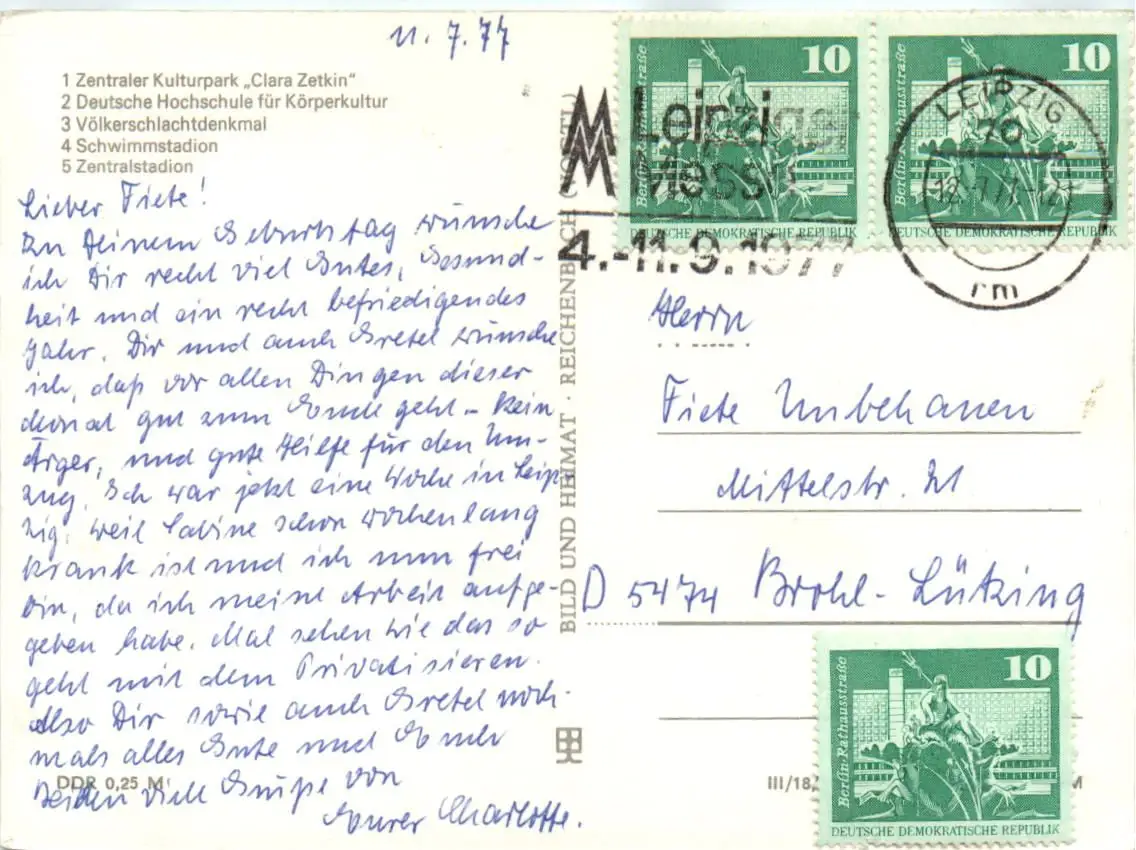 11.7.77
1 Zentraler Kulturpark „Clara Zetkin“
2 Deutsche Hochschule für Körperkultur
3 Völkerschlachtdenkmal
4 Schwimmstadion
5 Zentralstadion
Lieber Fiete!
Zu Deinem Geburtstag wünsche
ich Dir recht viel Gutes, Gesund-
heit und ein recht befriedigendes
Jahr. Dir und auch Gretel wünsche
ich, daß vor allen Dingen dieser
Monat gut zum Ende geht – kein
Ärger, und gute Hilfe für den Um-
zug. Ich war jetzt eine Woche in Leip-
zig, weil Sabine schon wochenlang
krank ist und ich nun frei
bin, da ich meine Arbeit aufge-
geben habe. Mal sehen wie das so
geht mit dem Privatisieren.
Also Dir sowie auch Gretel noch-
mals alles Gute und Euch
beiden viele Grüße von
Eurer Charlotte.
DDR 0,25 M
BILD UND HEIMAT · REICHENBACH (VOGTL)
10
Berlin-Rathausstraße
DEUTSCHE DEMOKRATISCHE REPUBLIK
10
Berlin-Rathausstraße
DEUTSCHE DEMOKRATISCHE REPUBLIK
MM Leipziger
Messe
4.-11.9.1977
LEIPZIG
70
12.7.77
rm
Herrn
Fiete Unbehauen
Mittelstr. 21
D 5474 Brohl-Lützing
10
Berlin-Rathausstraße
DEUTSCHE DEMOKRATISCHE REPUBLIK
III/18/
M